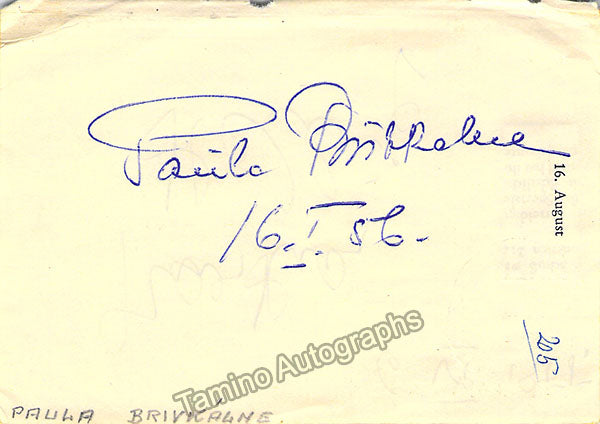 Paula Brīvkalne
16. I. 56.
16. August
205
Tamino Autographs
PAULA BRIVKALNE.